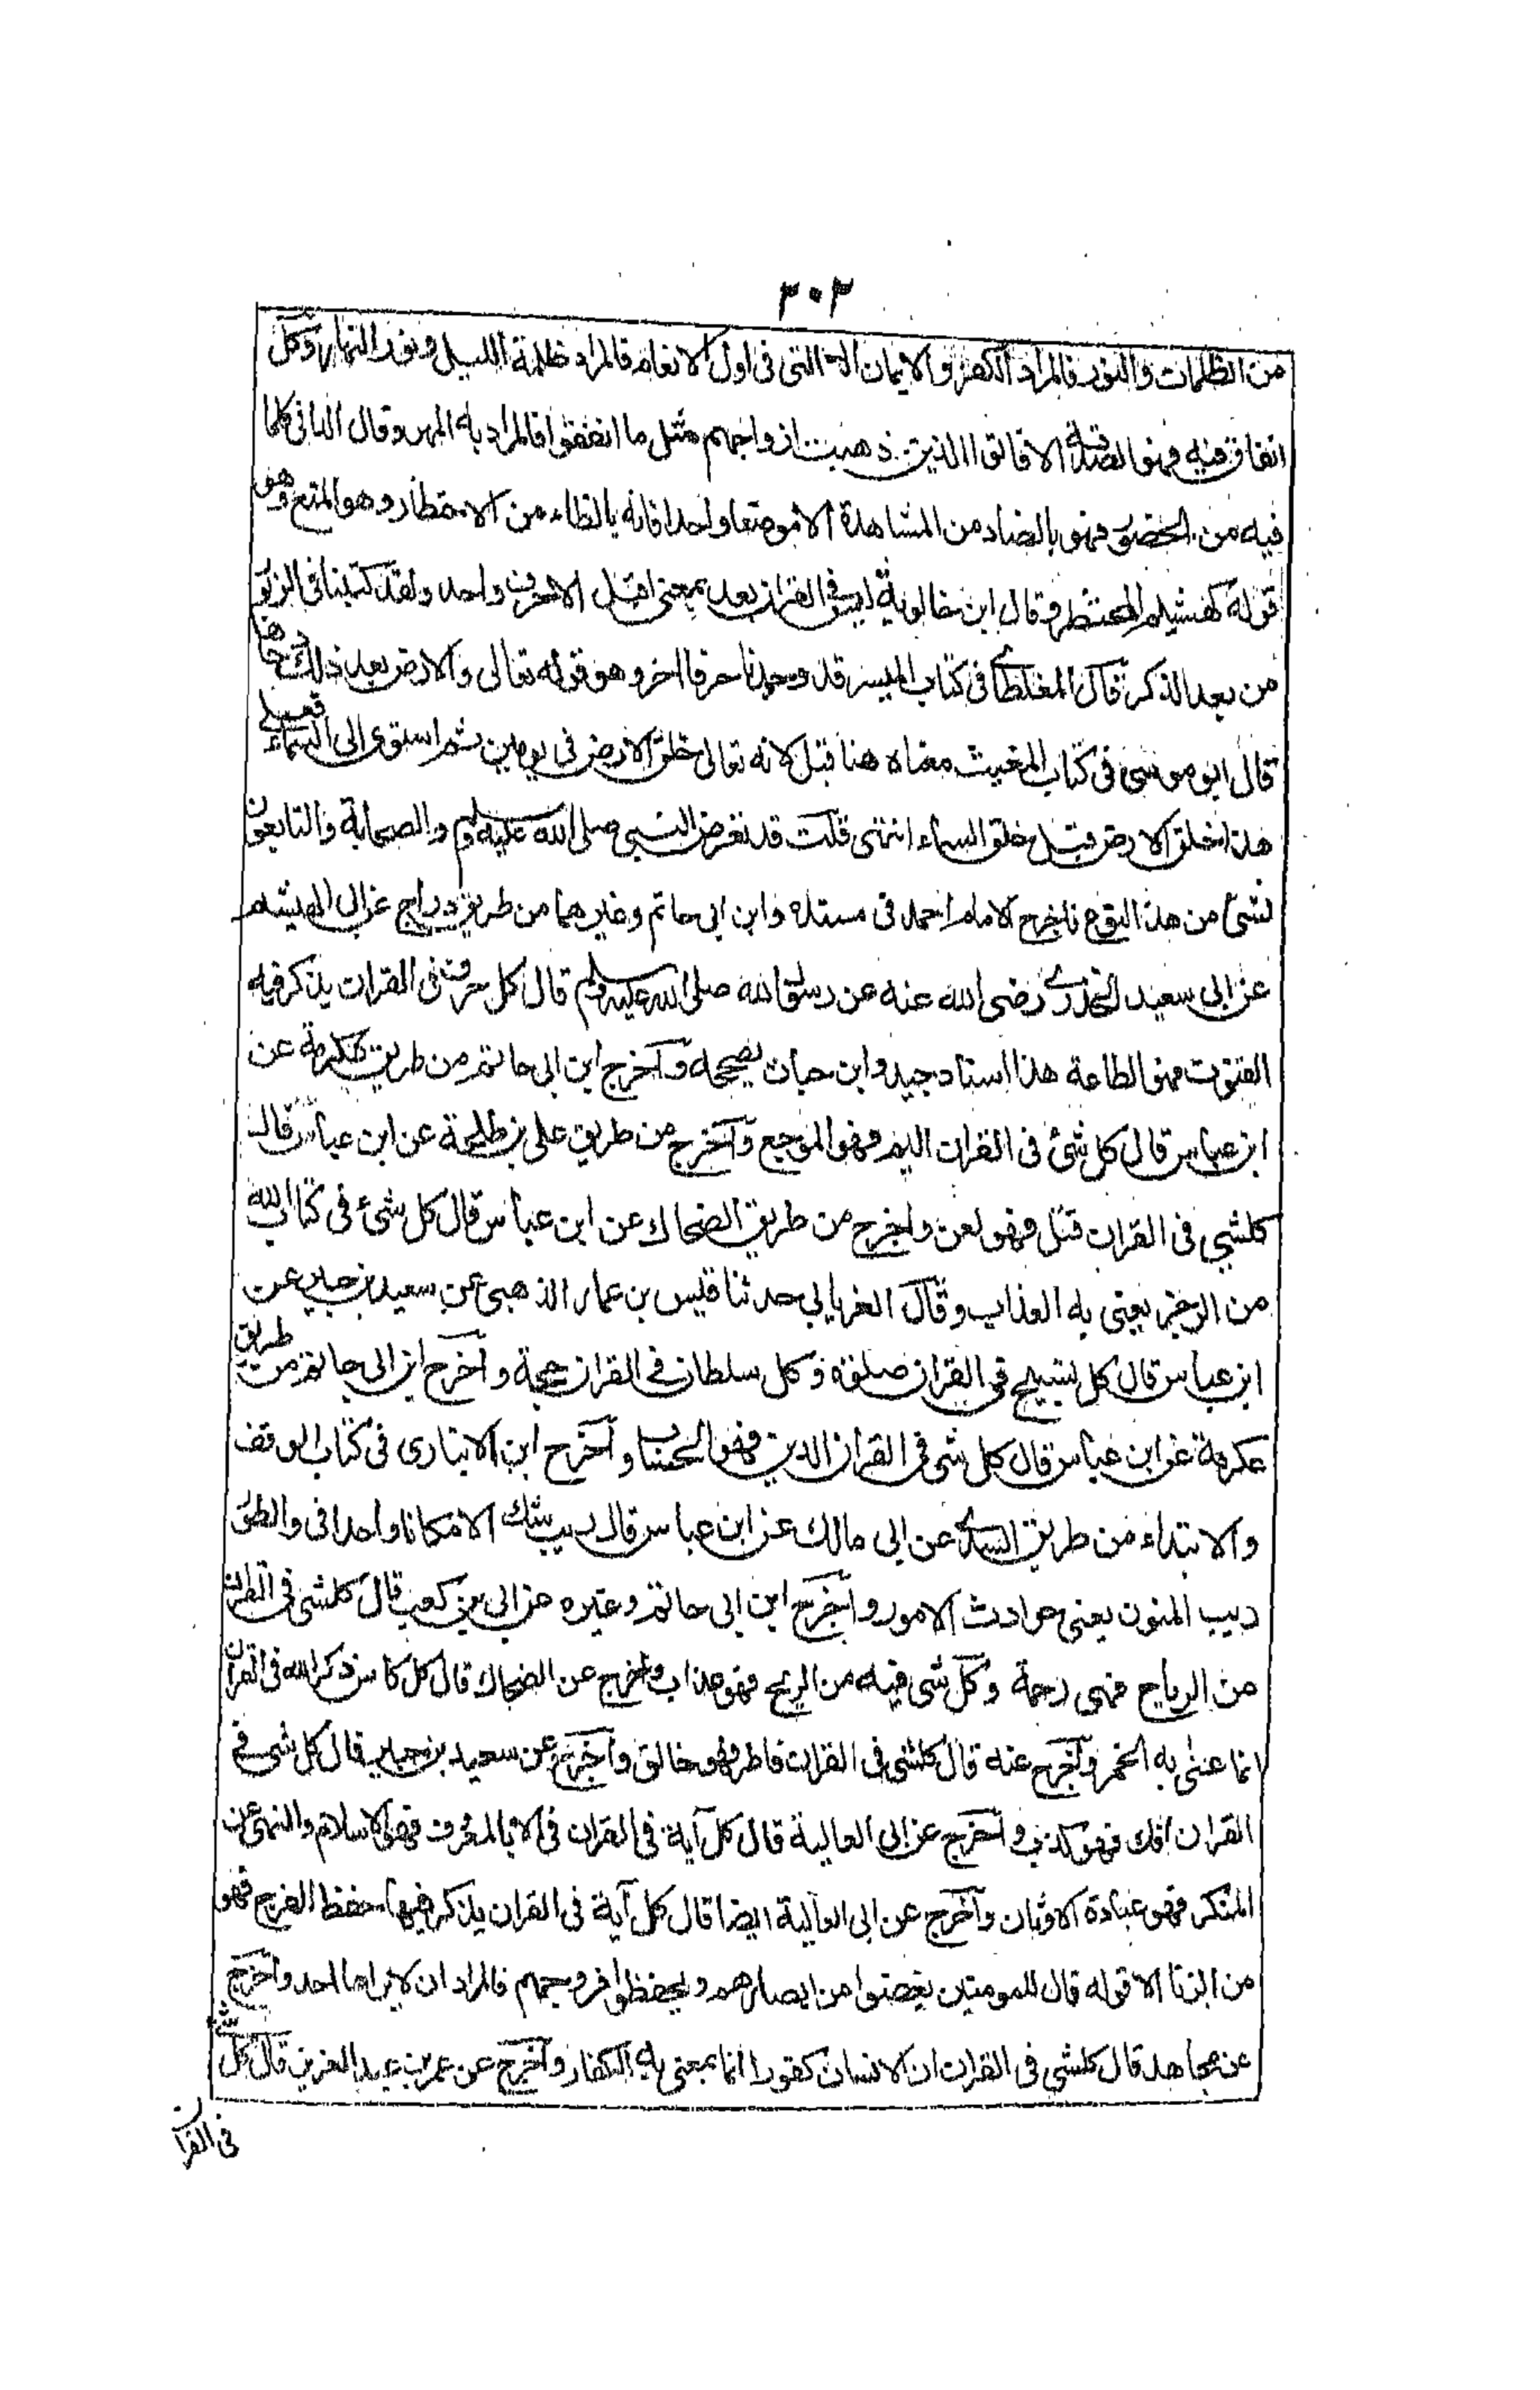 ٣٠٣
من الظلمات والنور فالمراد الكفر والايمان الا التى فى اول الانعام فالمراد ظلمة الليل ونور النهار وكل
انفاق فيه فهو الصدقة الا فاتوا الذين ذهبت ازواجهم مثل ما انفقوا فالمراد به المهر وقال الدانى كلما
فيه من الحضور فهو بالضاد من المشاهدة الا موضعا واحدا فانه بالظاء من الاحتظار وهو المنع وهو
قوله كهشيم المحتظر وقال ابن خالوية ليس فى القران بعد بمعنى قبل الا حرف واحد ولقد كتبنا فى الزبور
من بعد الذكر قال المغلطاى فى كتاب الميسر قد وجدنا حرفا اخر وهو قوله تعالى والارض بعد ذلك دحاها
قال ابو موسى فى كتاب المغيث معناه هنا قبل لانه تعالى خلق الارض فى يومين ثم استوى الى السماء فعلى
هذا خلق الارض قبل خلق السماء انتهى قلت قد تعرض النبى صلى الله عليه وسلم والصحابة والتابعون
لشئ من هذا النوع فاخرج الامام احمد فى مسنده وابن ابى حاتم وغيرهما من طريق دراج عن ابى الهيثم
عن ابى سعيد الخدرى رضى الله عنه عن رسول الله صلى الله عليه وسلم قال كل حرف فى القران يذكر فيه
القنوت فهو الطاعة هذا اسناد جيد وابن حبان يصححه واخرج ابن ابى حاتم من طريق عكرمة عن
ابن عباس قال كل شئ فى القران اليم فهو الموجع واخرج من طريق على بن طلحة عن ابن عباس قال
كلشى فى القران قتل فهو لعن واخرج من طريق الضحاك عن ابن عباس قال كل شئ فى كتاب الله
من الرجز يعنى به العذاب وقال الفريابى حدثنا قيس بن عمار الذهبى عن سعيد بن جبير عن
ابن عباس قال كل تسبيح فى القران صلوة وكل سلطان فى القران حجة واخرج ابن ابى حاتم من طريق
عكرمة عن ابن عباس قال كل شى فى القران الدين فهو الحساب واخرج ابن الانبارى فى كتاب الوقف
والابتداء من طريق السدى عن ابى مالك عن ابن عباس قال ريب شك الا مكانا واحدا فى والطور
ريب المنون يعنى حوادث الامور واخرج ابن ابى حاتم وغيره عن ابى بن كعب قال كلشى فى القران
من الرياح فهى رحمة وكل شى فيه من الريح فهو عذاب واخرج عن الضحاك قال كل كاس ذكر الله فى القران
انما عنى به الخمر واخرج عنه قال كلشى فى القران فاطر فهو خالق واخرج عن سعيد بن جبير قال كل شى فى
القران افك فهو كذب واخرج عن ابى العالية قال كل آية فى القران فى الامر بالمعرف فهو الاسلام والنهى عن
المنكر فهو عبادة الاوثان واخرج عن ابى العالية ايضا قال كل آية فى القران يذكر فيها حفظ الفرج فهو
من الزنا الا قوله قال للمومنين يغضوا من ابصارهم ويحفظوا فروجهم فالمراد ان لا يراها احد واخرج
عن مجاهد قال كلشى فى القران ان الانسان كفورا انما يعنى به الكفار واخرج عن عمر بن عبد العزيز قال كل شئ
فى القرآن